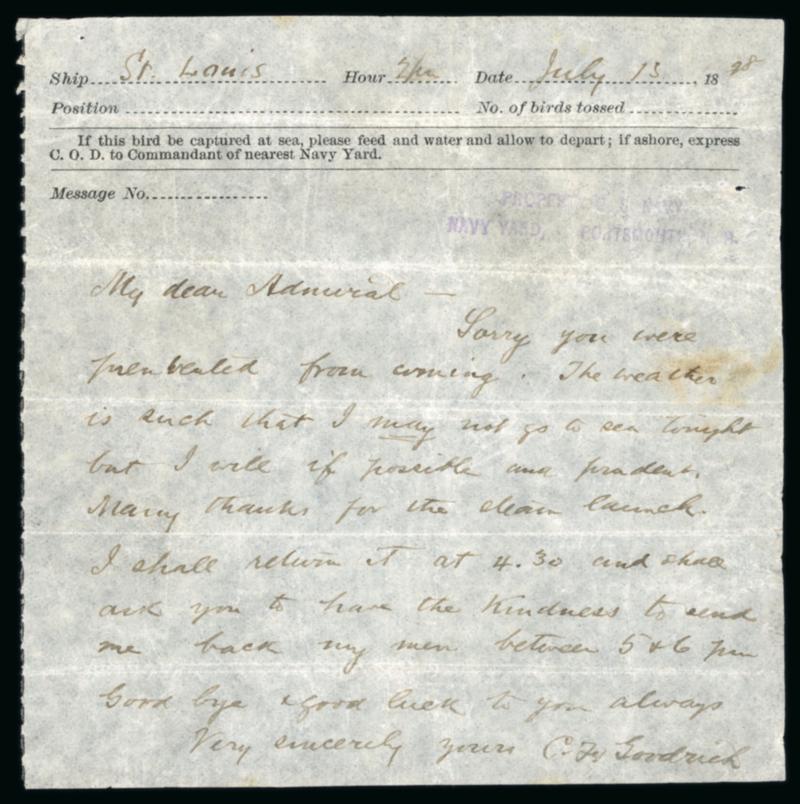 Ship St. Louis Hour 2 pm Date July 13, 1898
Position No. of birds tossed
If this bird be captured at sea, please feed and water and allow to depart; if ashore, express
C. O. D. to Commandant of nearest Navy Yard.
Message No.
PROPERTY NAVY
NAVY YARD, PORTSMOUTH, N. H.
My dear Admiral —
Sorry you were
prevented from coming. The weather
is such that I may not go to sea tonight
but I will if possible and prudent.
Many thanks for the steam launch.
I shall return it at 4.30 and shall
ask you to have the kindness to send
me back my men between 5 & 6 pm
Good bye & good luck to you always
Very sincerely yours C. F. Goodrich